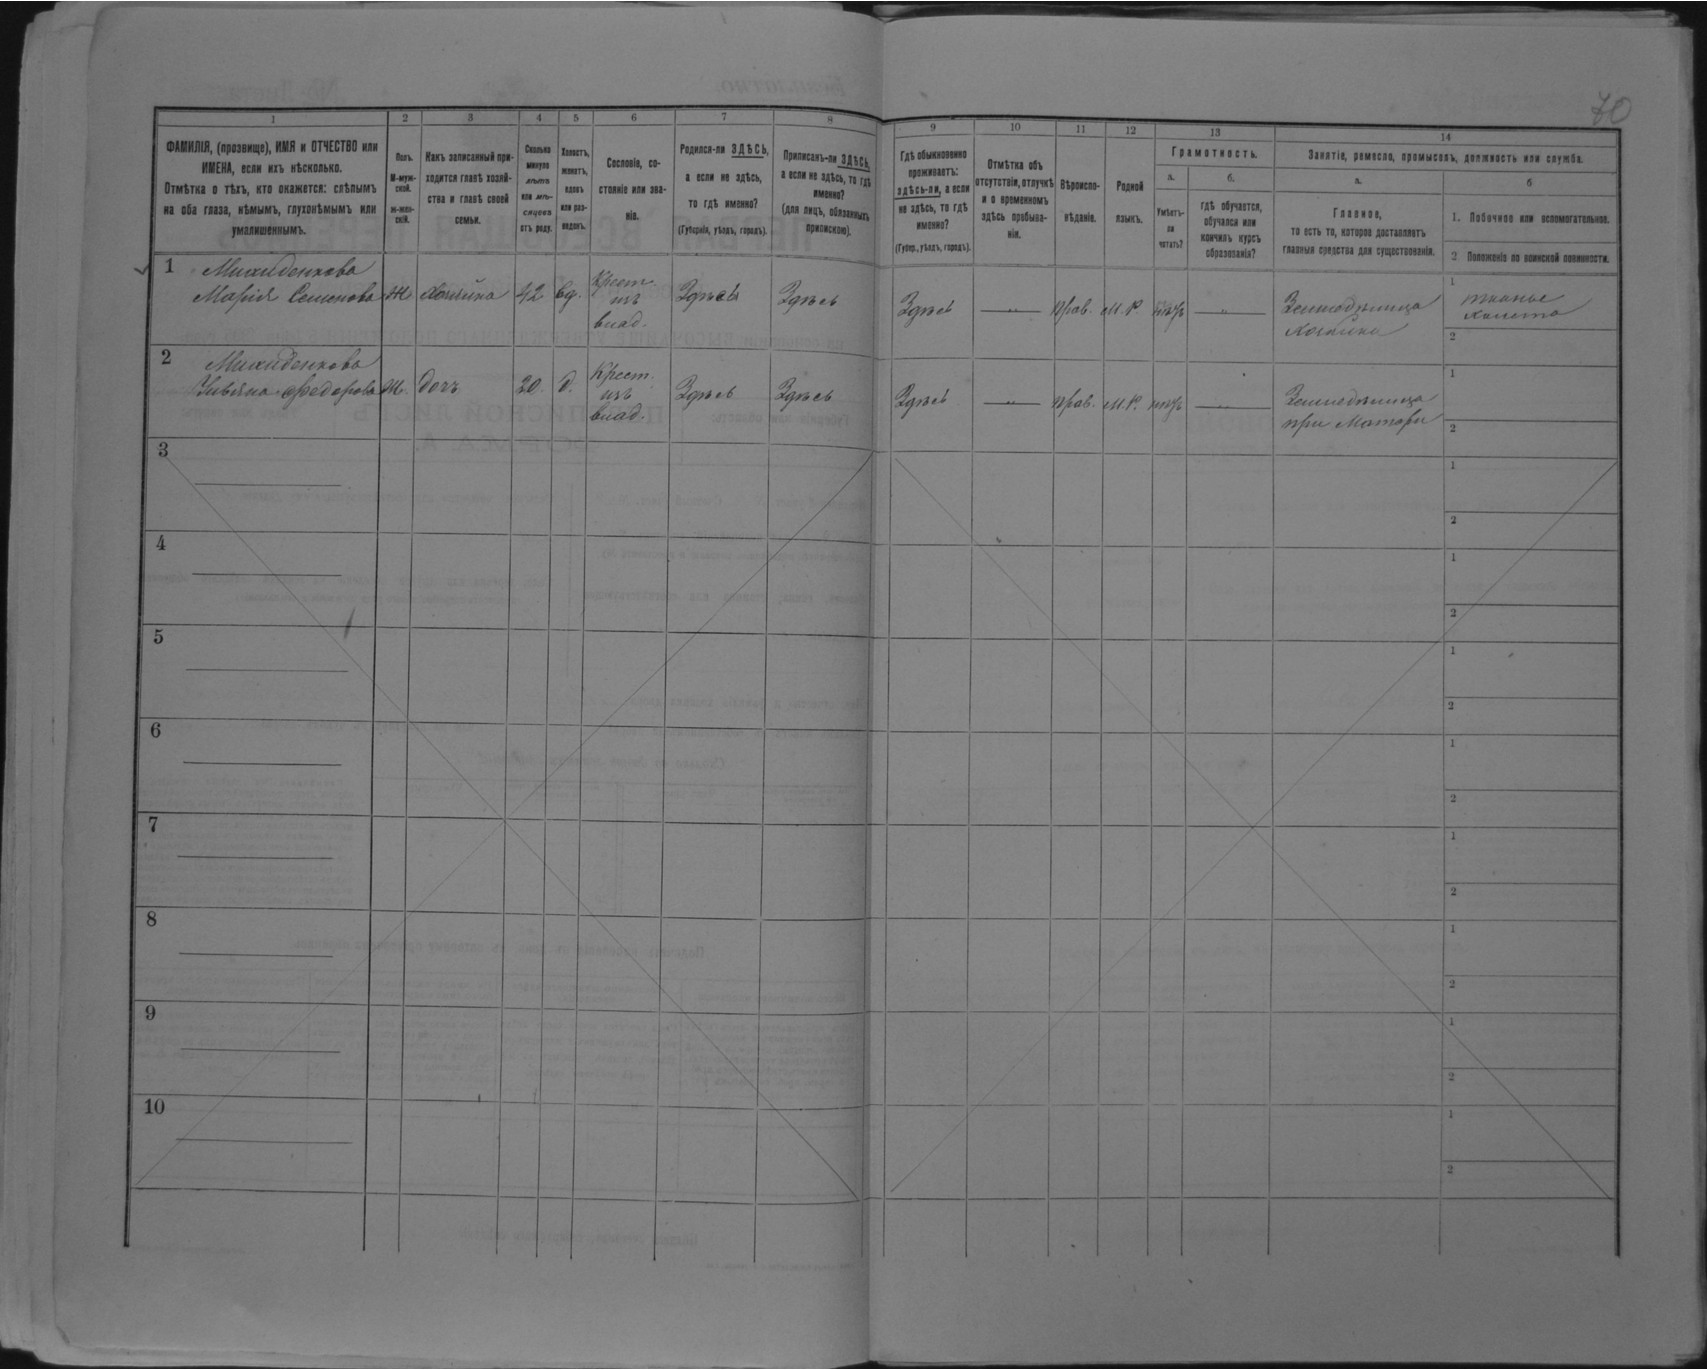 70
1
2
3
4
5
6
7
8
9
10
11
12
13
14
ФАМИЛІЯ, (прозвище), ИМЯ и ОТЧЕСТВО или
ИМЕНА, если ихъ нѣсколько.
Отмѣтка о тѣхъ, кто окажется: слѣпымъ
на оба глаза, нѣмымъ, глухонѣмымъ или
умалишеннымъ.
Полъ.
М-муж-
ской.
Ж-жен-
скій.
Какъ записанный при-
ходится главѣ хозяй-
ства и главѣ своей
семьи.
Сколько
минуло
лѣтъ
или мѣ-
сяцевъ
отъ роду.
Холостъ,
женатъ,
вдовъ
или раз-
веденъ.
Сословіе, со-
стояніе или зва-
ніе.
Родился-ли ЗДѢСЬ,
а если не здѣсь,
то гдѣ именно?
(Губернія, уѣздъ, городъ).
Приписанъ-ли ЗДѢСЬ,
а если не здѣсь, то гдѣ
именно?
(для лицъ, обязанныхъ
припискою).
Гдѣ обыкновенно
проживаетъ:
здѣсь-ли, а если
не здѣсь, то гдѣ
именно?
(Губер., уѣздъ, городъ).
Отмѣтка объ
отсутствіи, отлучкѣ
и о временномъ
здѣсь пребыва-
ніи.
Вѣроиспо-
вѣданіе.
Родной
языкъ.
Грамотность.
а.
Умѣетъ-
ли
читать?
б.
гдѣ обучается,
обучался или
кончилъ курсъ
образованія?
Занятіе, ремесло, промыселъ, должность или служба.
а.
Главное,
то есть то, которое доставляетъ
главныя средства для существованія.
б
1. Побочное или вспомогательное.
2 Положеніе по воинской повинности.
1
Марія Семенова
Ж
Хозяйка
42
вд.
Крест.
изъ
влад.
Здѣсь
Здѣсь
Здѣсь
Прав.
М. Р.
Хозяйка
1
тканье
холста
2
2
Ж.
Дочь
20.
д.
Крест.
изъ
влад.
Здѣсь
Здѣсь
Здѣсь
Прав.
М. Р.
при Матери
1
2
3
1
2
4
1
2
5
1
2
6
1
2
7
1
2
8
1
2
9
1
2
10
1
2